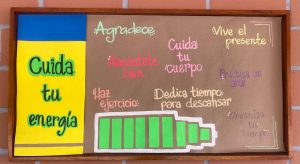 Cuida
tu
energía
Agradece:
Aliméntate
bien
Haz
ejercicio:
Cuida
tu
cuerpo
Dedica tiempo:
para descansar
Vive el
presente
Practica un
arte
tu
tiempo